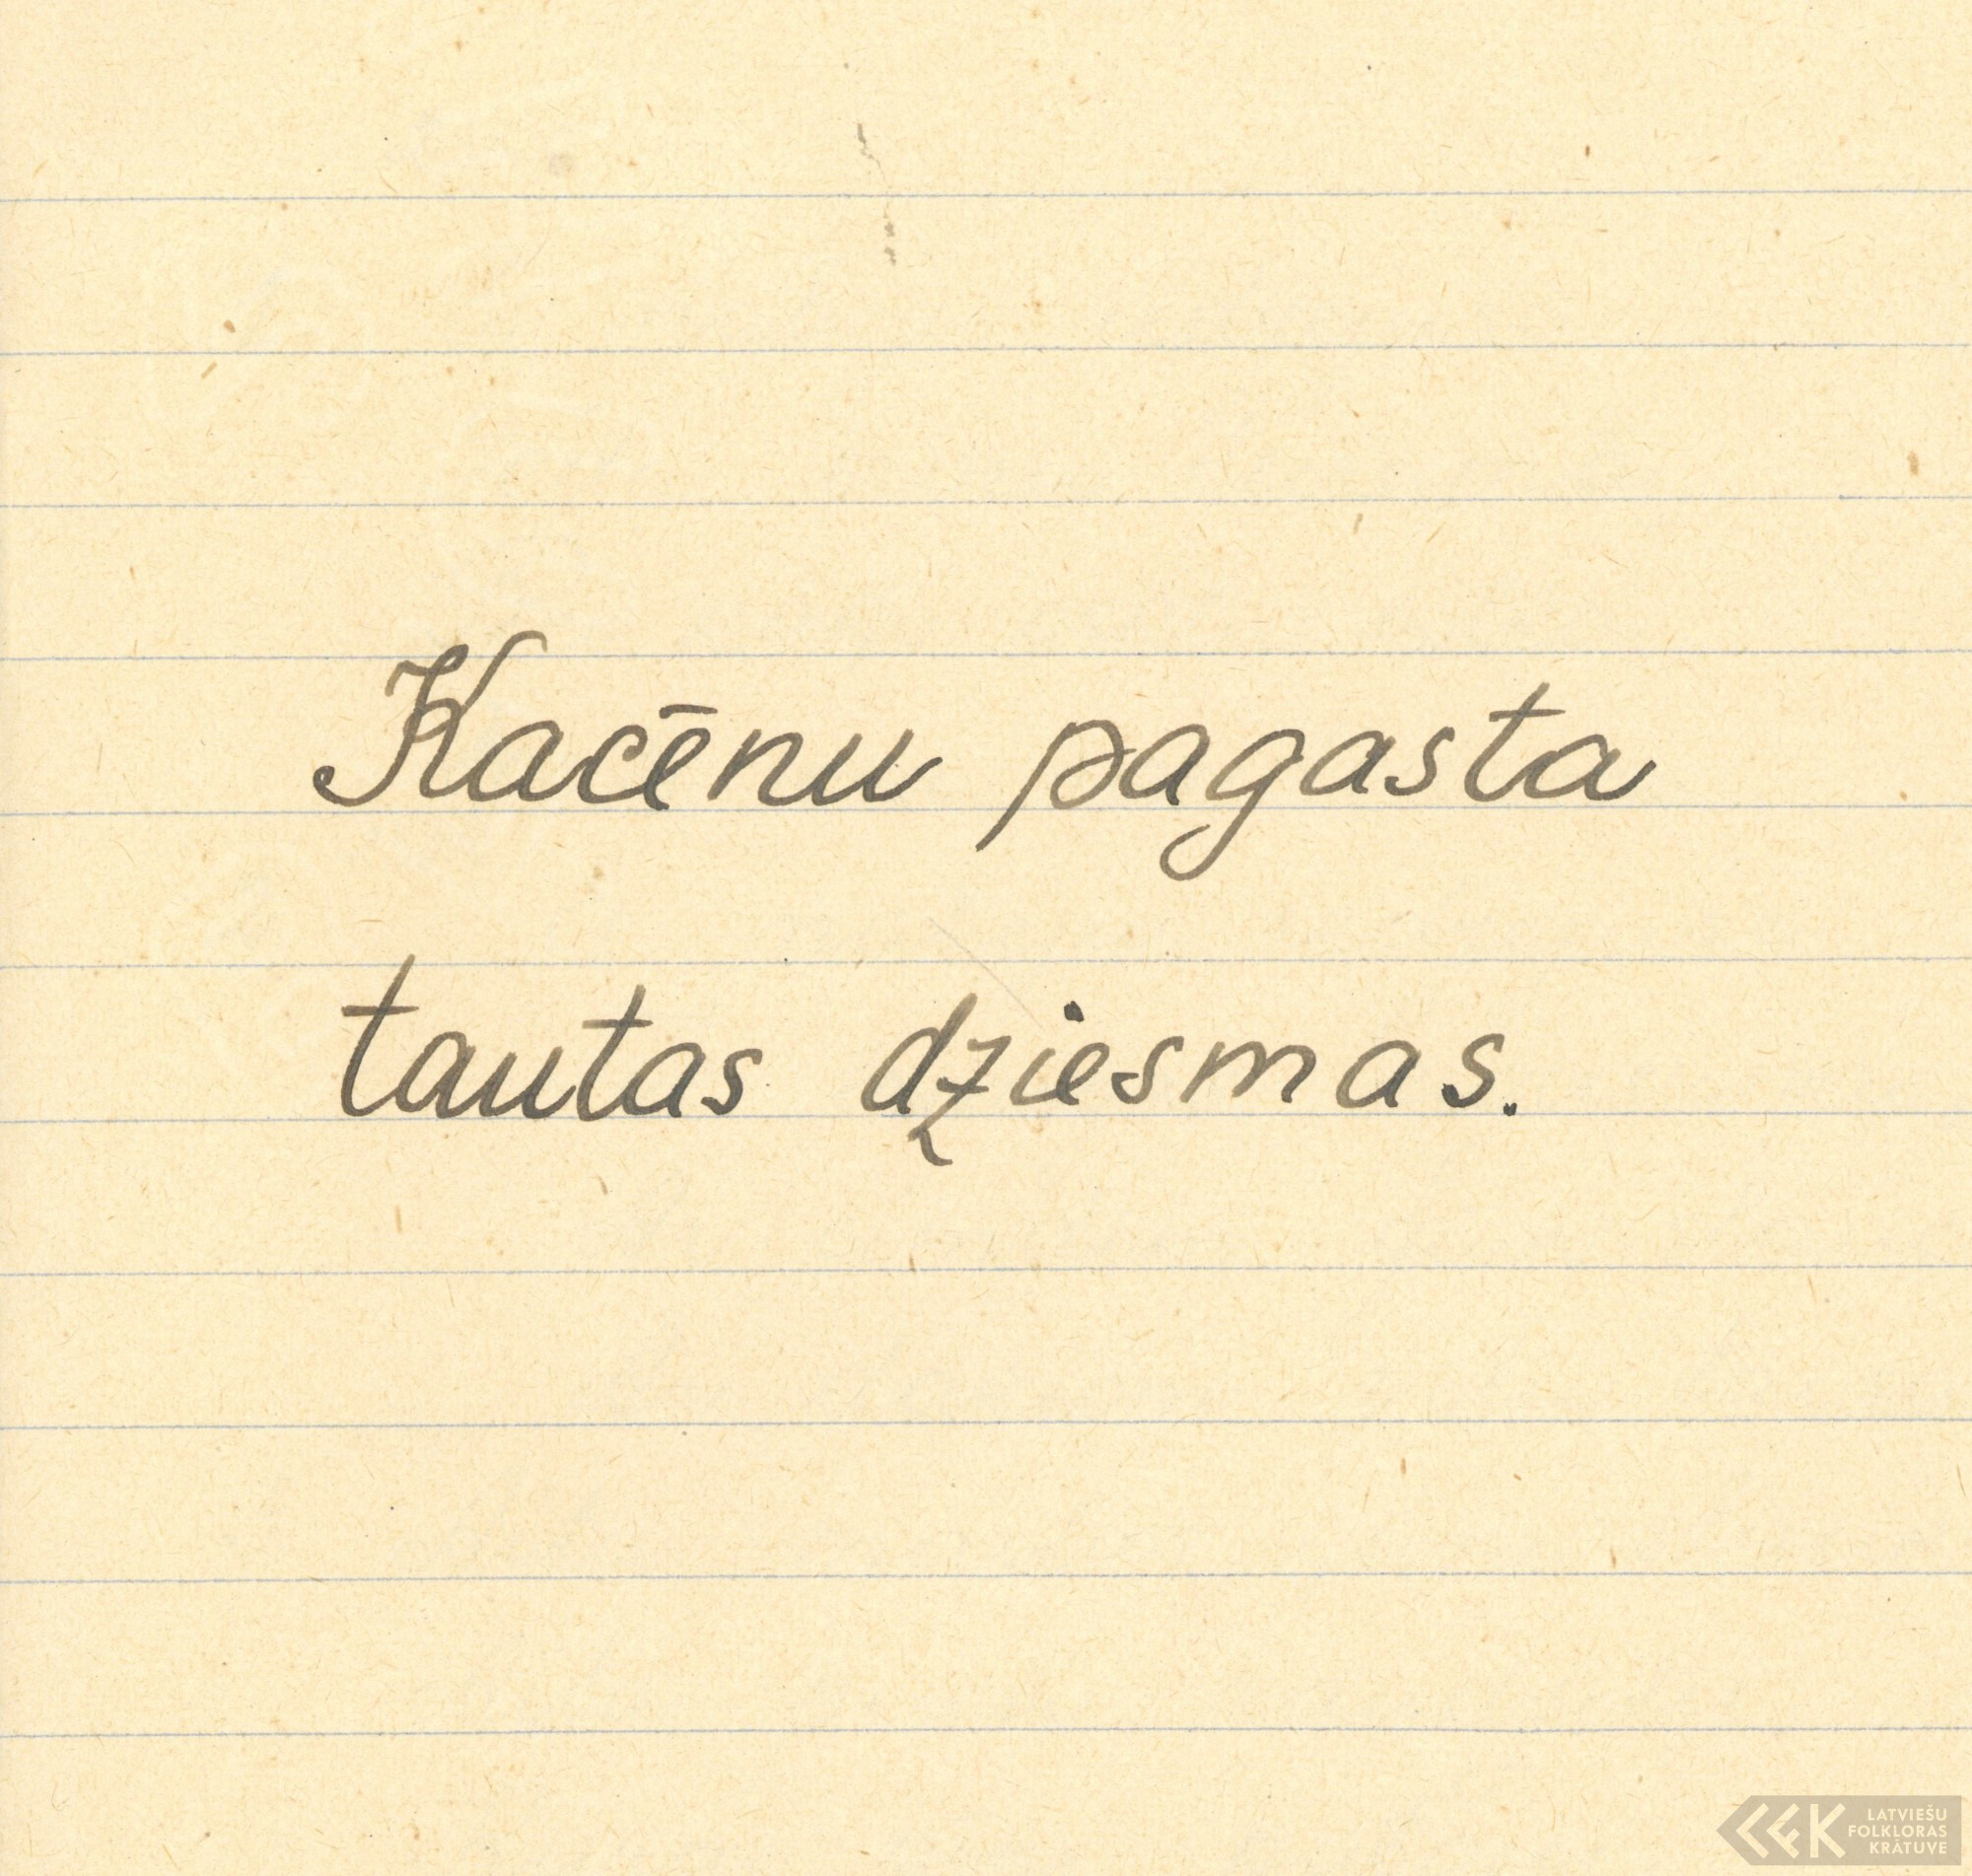 Kacēnu pagasta
tautas dziesmas.
LATVIEŠU
FOLKLORAS
KRĀTUVE